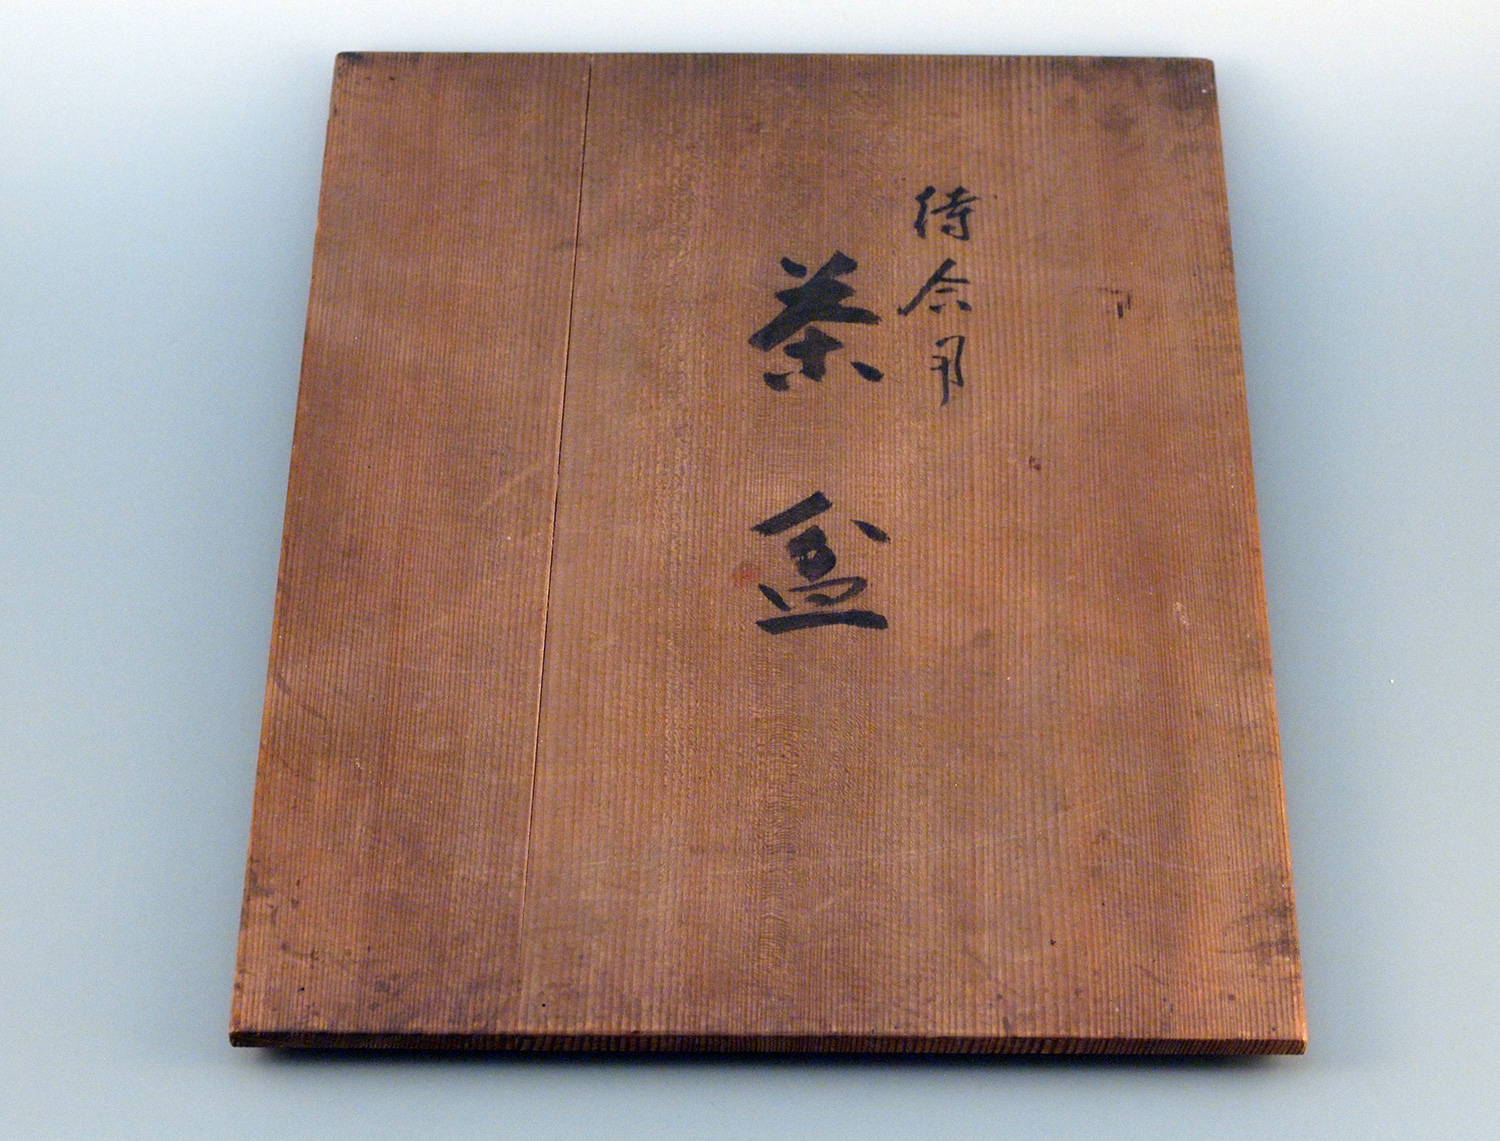 待合用
茶盆